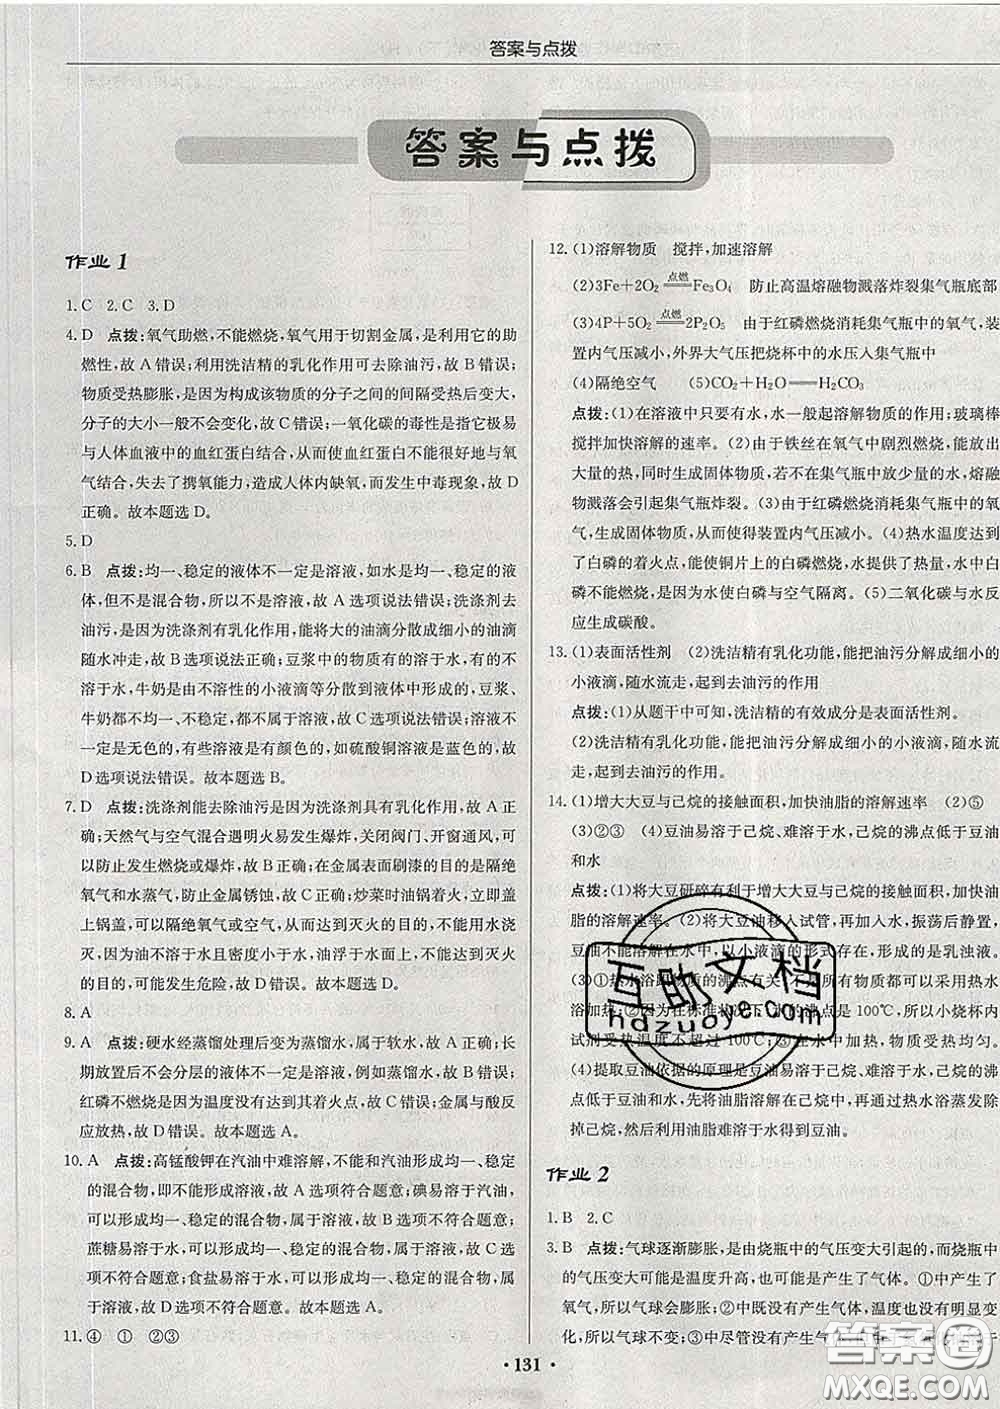 答案与点拨
答案与点拨
作业 1
1.C 2.C 3.D
4.D 点拨:氧气助燃,不能燃烧,氧气用于切割金属,是利用它的助
燃性,故 A 错误;利用洗洁精的乳化作用可去除油污,故 B 错误;
物质受热膨胀,是因为构成该物质的分子之间的间隔受热后变大,
分子的大小一般不会变化,故 C 错误;一氧化碳的毒性是由于它极易
与人体血液中的血红蛋白结合,从而使血红蛋白不能很好地与氧
气结合,失去了携氧能力,造成人体内缺氧,而发生中毒现象,故 D
正确。故本题选 D。
5.D
6.B 点拨:均一、稳定的液体不一定是溶液,如水是均一、稳定的液
体,但不是混合物,所以不是溶液,故 A 选项说法错误;洗涤剂去
油污,是因为洗涤剂有乳化作用,能将大的油滴分散成细小的油滴
随水冲走,故 B 选项说法正确;豆浆中的物质有的溶于水,有的不
溶于水,牛奶是由不溶性的小液滴等分散到液体中形成的,豆浆、
牛奶都不均一、不稳定,都不属于溶液,故 C 选项说法错误;溶液不
一定是无色的,有些溶液是有颜色的,如硫酸铜溶液是蓝色的,故
D 选项说法错误。故本题选 B。
7.D 点拨:洗涤剂能去除油污是因为洗涤剂具有乳化作用,故 A 正
确;天然气与空气混合遇明火易发生爆炸,关闭阀门、开窗通风,可
以防止发生燃烧或爆炸,故 B 正确;在金属表面刷漆的目的是隔绝
氧气和水蒸气,防止金属锈蚀,故 C 正确;炒菜时油锅着火,立即盖
上锅盖,可以隔绝氧气或空气,从而达到灭火的目的,不能用水浇
灭,因为油的密度小于水,且不溶于水,油浮于水面上,不能达到灭
火的目的,可能发生危险,故 D 错误。故本题选 D。
8.A
9.A 点拨:硬水经蒸馏处理后变为蒸馏水,属于软水,故 A 正确;长
期放置后不会分层的液体不一定是溶液,例如蒸馏水,故 B 错误;
红磷不燃烧是因为温度没有达到其着火点,故 C 错误;金属与酸反
应放热,故 D 错误。故本题选 A。
10.A 点拨:高锰酸钾在汽油中难溶解,不能和汽油形成均一、稳定
的混合物,即不能形成溶液,故 A 选项符合题意;碘易溶于汽油,
可以形成均一、稳定的混合物,属于溶液,故 B 选项不符合题意;
蔗糖易溶于水,可以形成均一、稳定的混合物,属于溶液,故 C 选
项不符合题意;食盐易溶于水,可以形成均一、稳定的混合物,属
于溶液,故 D 选项不符合题意。故本题选 A。
11.④ ① ②③
12.(1)溶解物质 搅拌,加速溶解
(2)3Fe+2O₂ 点燃 Fe₃O₄ 防止高温熔融物溅落炸裂集气瓶底部
(3)4P+5O₂ 点燃 2P₂O₅ 由于红磷燃烧消耗集气瓶中的氧气,装
置内气压减小,外界大气压把烧杯中的水压入集气瓶中
(4)隔绝空气 (5)CO₂+H₂O══H₂CO₃
点拨:(1)在溶液中只要有水,水一般起溶解物质的作用;玻璃棒
搅拌加快溶解的速率。(2)由于铁丝在氧气中剧烈燃烧,能放出
大量的热,同时生成固体物质,若不在集气瓶中放少量的水,熔融
物溅落会引起集气瓶炸裂。(3)由于红磷燃烧消耗集气瓶中的氧
气,生成固体物质,从而使装置内气压减小。(4)热水温度达到
了白磷的着火点,能使铜片上的白磷燃烧,尽管提供了热量,水中白
磷不能燃烧,是因为没有使白磷与空气隔离。(5)二氧化碳与水反
应生成碳酸。
13.(1)表面活性剂 (2)洗洁精有乳化功能,能把油污分解成细小的
小液滴,随水流走,起到去油污的作用
点拨:(1)从题干中可知,洗洁精的有效成分是表面活性剂。
(2)洗洁精有乳化功能,能把油污分解成细小的小液滴,随水流
走,起到去油污的作用。
14.(1)增大大豆与己烷的接触面积,加快油脂的溶解速率 (2)⑤
(3)②③ (4)豆油易溶于己烷、难溶于水,己烷的沸点低于豆油
和水
点拨:(1)将大豆研碎有利于增大大豆与己烷的接触面积,加快油
脂的溶解速率。(2)将大豆油移入试管,再加入水,振荡后静置,
豆油不能溶解在水中,以小液滴的形式存在,形成的是乳浊液。
(3)①热水浴跟物质的沸点有关,不是所有物质都可以采用热水
浴加热;②因为在标准状况下,水的沸点是 100℃,小烧杯内
试剂受热温度不超过 100℃;③在水中加热,物质受热均匀。
(4)提取豆油依据的原理是豆油易溶于己烷,然后用热水浴蒸发除
掉己烷,然后利用油脂难溶于水得到豆油。
作业 2
1.B 2.C
3.B 点拨:气球逐渐膨胀,是由烧瓶中的气压变大引起的,而烧瓶中
的气压变大可能是温度升高,也可能是产生了气体。①中产生了
氧气,所以气球会膨胀;②中没有产生气体,温度也没有明显变
化,所以气球不变;③中尽管没有产生气体
· 131 ·
互助文档
hdzuoye.com
答案圈
MXQE.COM